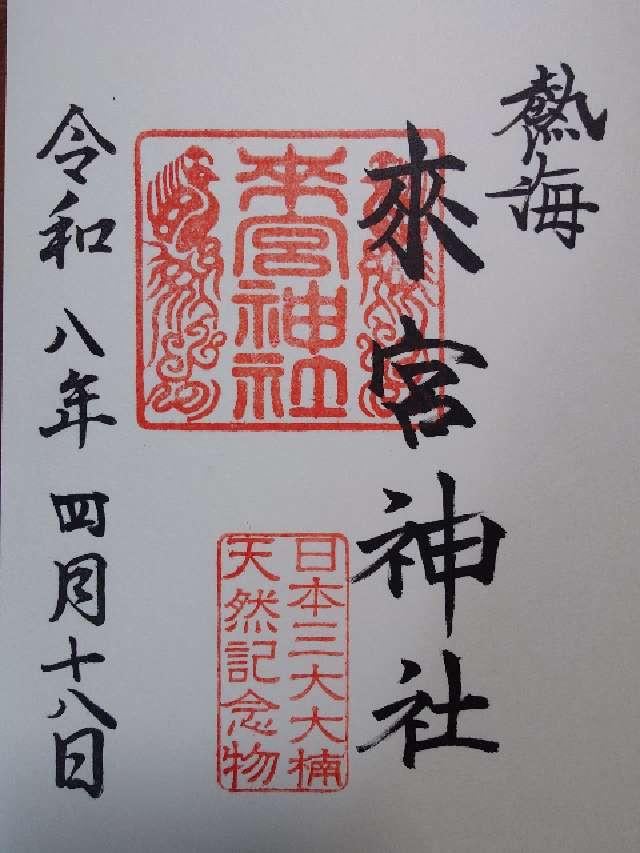 熱海
來宮神社
来宮神社
日本三大大楠
天然記念物
令和八年四月十八日